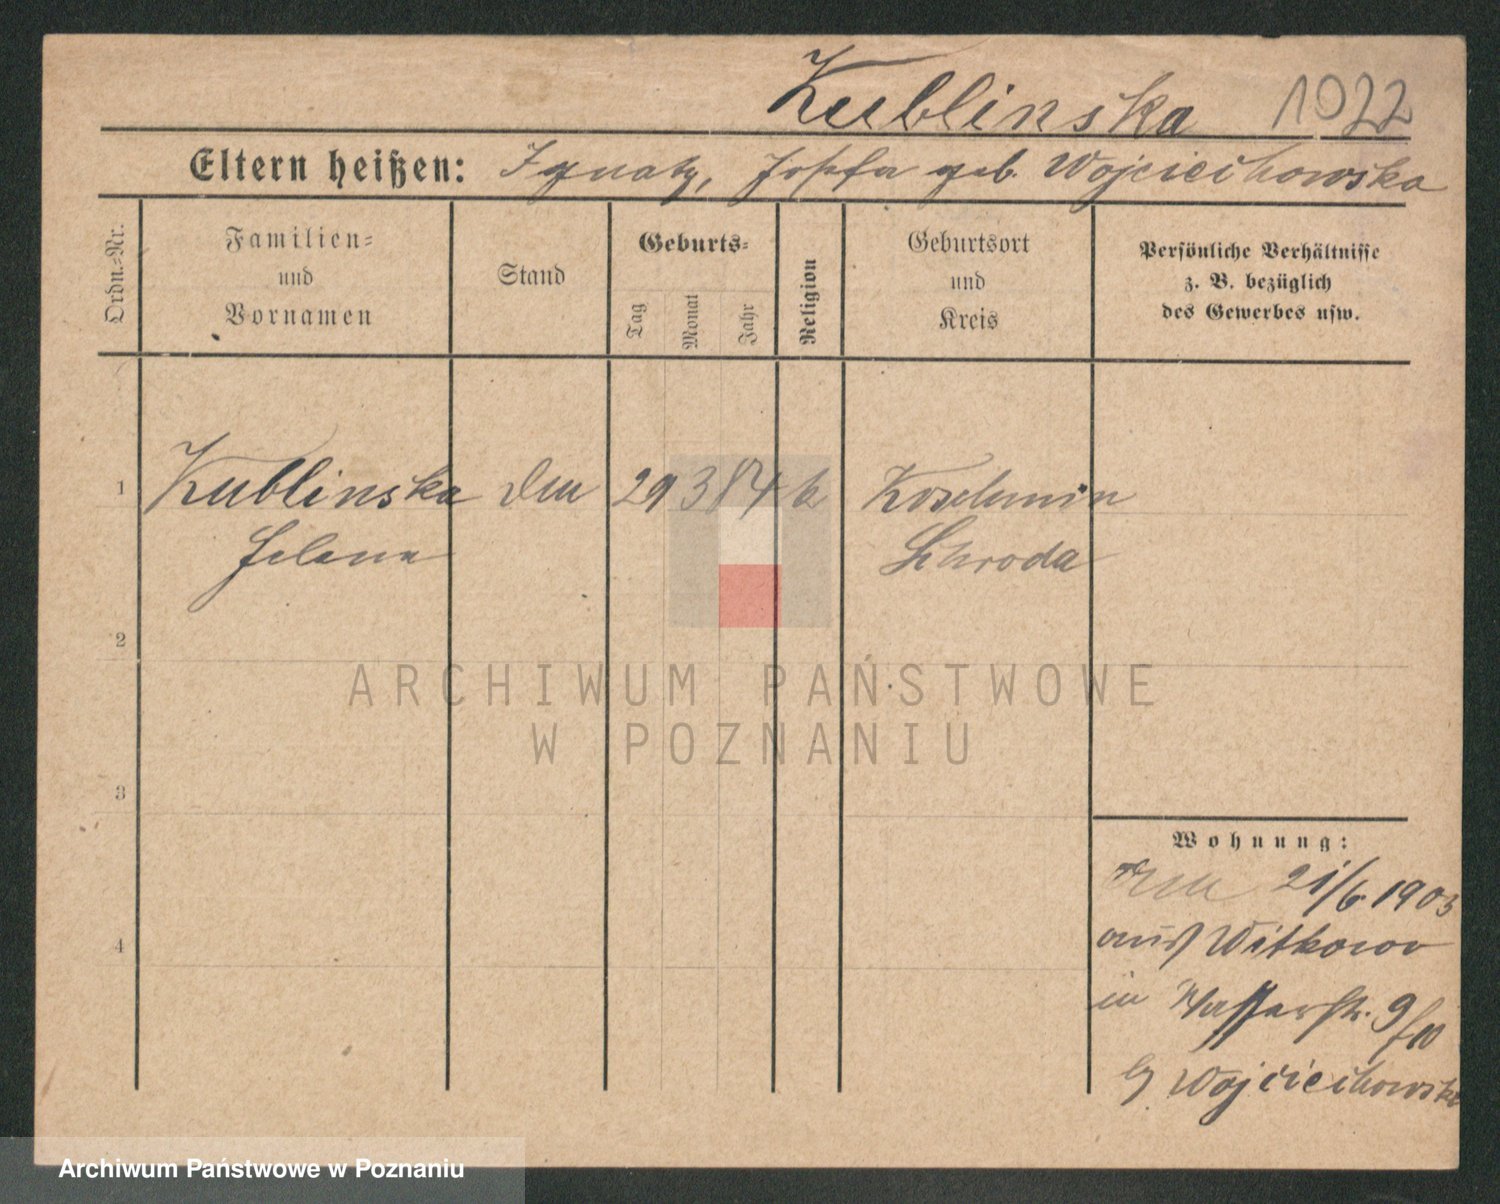 Kublinska 1022
Eltern heißen: Ignatz, Josefa geb. Wojciechowska
Ordn.-Nr.
Familien-
und
Vornamen
Stand
Geburts-
Tag
Monat
Jahr
Religion
Geburtsort
und
Kreis
Persönliche Verhältnisse
z. B. bezüglich
des Gewerbes usw.
1 Kublinska 29 3 84 k
Helena Schroda
2
3
4
Wohnung:
21/6 1903
aus Witkowo
in Wasserstr. 9/10
Wojciechowska
ARCHIWUM PAŃSTWOWE
W POZNANIU
Archiwum Państwowe w Poznaniu